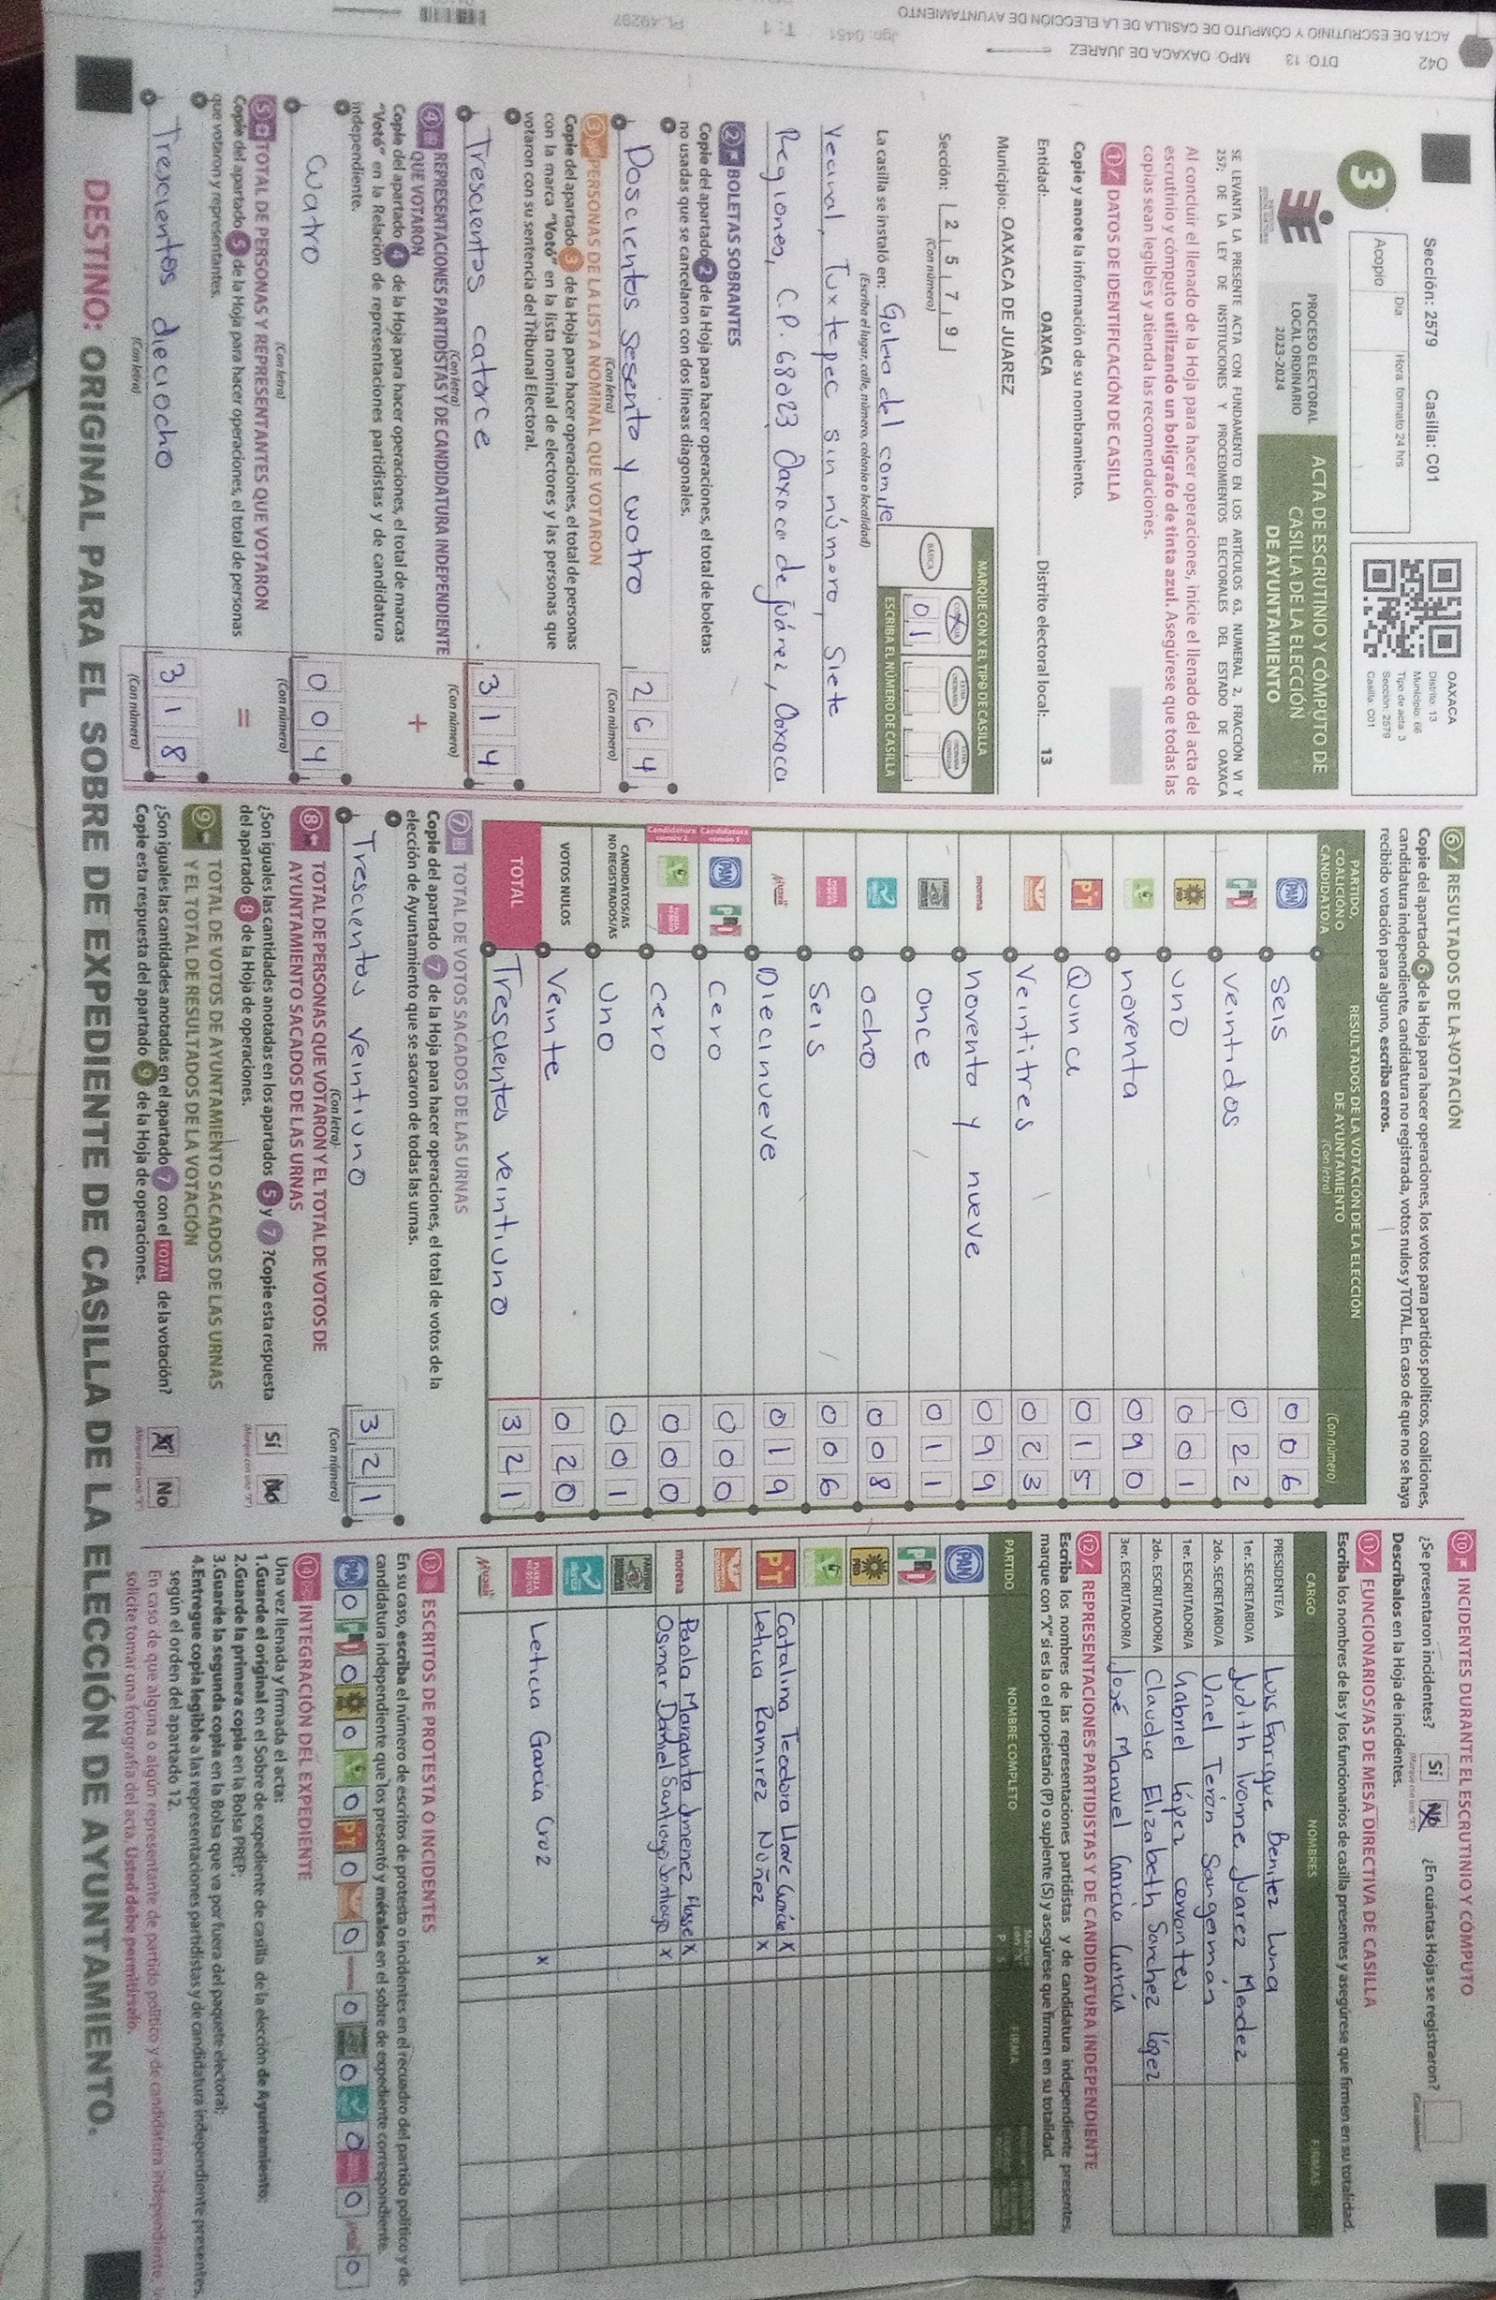 Sección: 2579 Casilla: C01
Día Hora: formato 24 hrs
Acopio
OAXACA
Distrito: 13
Municipio: 66
Tipo de acta: 3
Sección: 2579
Casilla: C01
3
PROCESO ELECTORAL
LOCAL ORDINARIO
2023-2024
ACTA DE ESCRUTINIO Y CÓMPUTO DE
CASILLA DE LA ELECCIÓN
DE AYUNTAMIENTO
SE LEVANTA LA PRESENTE ACTA CON FUNDAMENTO EN LOS ARTÍCULOS 63, NUMERAL 2, FRACCIÓN VI Y
257; DE LA LEY DE INSTITUCIONES Y PROCEDIMIENTOS ELECTORALES DEL ESTADO DE OAXACA
Al concluir el llenado de la Hoja para hacer operaciones, inicie el llenado del acta de
escrutinio y cómputo utilizando un bolígrafo de tinta azul. Asegúrese que todas las
copias sean legibles y atienda las recomendaciones.
1 DATOS DE IDENTIFICACIÓN DE CASILLA
Copie y anote la información de su nombramiento.
Entidad: OAXACA Distrito electoral local: 13
Municipio: OAXACA DE JUAREZ
Sección: 2 5 7 9
(Con número)
MARQUE CON X EL TIPO DE CASILLA
BÁSICA
0 1
ESCRIBA EL NÚMERO DE CASILLA
La casilla se instaló en: Galeria del comite
(Escriba el lugar, calle, número, colonia o localidad)
Vecinal, Tuxtepec sin número, Siete
Regiones, C.P. 68023 Oaxaca de juárez, Oaxaca
2 BOLETAS SOBRANTES
Copie del apartado 2 de la Hoja para hacer operaciones, el total de boletas
no usadas que se cancelaron con dos líneas diagonales.
Doscientos sesenta y cuatro 2 6 4
(Con letra) (Con número)
3 PERSONAS DE LA LISTA NOMINAL QUE VOTARON
Copie del apartado 3 de la Hoja para hacer operaciones, el total de personas
con la marca "Votó" en la lista nominal de electores y las personas que
votaron con su sentencia del Tribunal Electoral.
Trescientos catorce 3 1 4
(Con letra) (Con número)
4 REPRESENTACIONES PARTIDISTAS Y DE CANDIDATURA INDEPENDIENTE
QUE VOTARON
Copie del apartado 4 de la Hoja para hacer operaciones, el total de marcas
"Votó" en la Relación de representaciones partidistas y de candidatura
independiente.
+
cuatro 0 0 4
(Con letra) (Con número)
5 TOTAL DE PERSONAS Y REPRESENTANTES QUE VOTARON
Copie del apartado 5 de la Hoja para hacer operaciones, el total de personas
que votaron y representantes.
=
Trescientos dieciocho 3 1 8
(Con letra) (Con número)
6 RESULTADOS DE LA VOTACIÓN
Copie del apartado 6 de la Hoja para hacer operaciones, los votos para partidos políticos, coaliciones,
candidatura independiente, candidatura no registrada, votos nulos y TOTAL. En caso de que no se haya
recibido votación para alguno, escriba ceros.
PARTIDO,
COALICIÓN O
CANDIDATO/A
RESULTADOS DE LA VOTACIÓN DE LA ELECCIÓN
DE AYUNTAMIENTO
(Con letra) (Con número)
PAN seis 0 0 6
PRI veintidos 0 2 2
PRD uno 0 0 1
noventa 0 9 0
PT Quince 0 1 5
Veintitres 0 2 3
morena noventa y nueve 0 9 9
once 0 1 1
ocho 0 0 8
seis 0 0 6
Diecinueve 0 1 9
Candidatura común 1 PAN PRI cero 0 0 0
Candidatura común 2 cero 0 0 0
CANDIDATOS/AS
NO REGISTRADOS/AS uno 0 0 1
VOTOS NULOS Veinte 0 2 0
TOTAL Trescientos veintiuno 3 2 1
7 TOTAL DE VOTOS SACADOS DE LAS URNAS
Copie del apartado 7 de la Hoja para hacer operaciones, el total de votos de la
elección de Ayuntamiento que se sacaron de todas las urnas.
Trescientos veintiuno 3 2 1
(Con letra) (Con número)
8 TOTAL DE PERSONAS QUE VOTARON Y EL TOTAL DE VOTOS DE
AYUNTAMIENTO SACADOS DE LAS URNAS
¿Son iguales las cantidades anotadas en los apartados 5 y 7 ?Copie esta respuesta
del apartado 8 de la Hoja de operaciones.
Sí No
9 TOTAL DE VOTOS DE AYUNTAMIENTO SACADOS DE LAS URNAS
Y EL TOTAL DE RESULTADOS DE LA VOTACIÓN
¿Son iguales las cantidades anotadas en el apartado 7 con el TOTAL de la votación?
Copie esta respuesta del apartado 9 de la Hoja de operaciones.
Sí No
10 INCIDENTES DURANTE EL ESCRUTINIO Y CÓMPUTO
¿Se presentaron incidentes? Sí No ¿En cuántas Hojas se registraron?
Descríbalos en la Hoja de incidentes.
11 FUNCIONARIOS/AS DE MESA DIRECTIVA DE CASILLA
Escriba los nombres de las y los funcionarios de casilla presentes y asegúrese que firmen en su totalidad.
CARGO NOMBRES FIRMAS
PRESIDENTE/A Luis Enrique Benitez Luna
1er. SECRETARIO/A Judith Ivonne Juarez Mendez
2do. SECRETARIO/A Uriel Terán Sangermán
1er. ESCRUTADOR/A Gabriel López cervantes
2do. ESCRUTADOR/A Claudia Elizabeth Sanchez lópez
3er. ESCRUTADOR/A José Manuel García García
12 REPRESENTACIONES PARTIDISTAS Y DE CANDIDATURA INDEPENDIENTE
Escriba los nombres de las representaciones partidistas y de candidatura independiente presentes,
marque con "X" si es la o el propietario (P) o suplente (S) y asegúrese que firmen en su totalidad.
PARTIDO NOMBRE COMPLETO P S FIRMA
PAN
PRI
PRD
PT Catalina Teodora Llave García X
Leticia Ramirez Nuñez X
morena Paola Margarita Jimenez X
Osmar Daniel Santiago Santiago X
Leticia García Cruz X
13 ESCRITOS DE PROTESTA O INCIDENTES
En su caso, escriba el número de escritos de protesta o incidentes en el recuadro del partido político y de
candidatura independiente que los presentó y métalos en el sobre de expediente correspondiente.
PAN 0 PRI 0 PRD 0 0 PT 0 0 0 0 0 0 0
14 INTEGRACIÓN DEL EXPEDIENTE
Una vez llenada y firmada el acta:
1.Guarde el original en el Sobre de expediente de casilla de la elección de Ayuntamiento;
2.Guarde la primera copia en la Bolsa PREP;
3.Guarde la segunda copia en la Bolsa que va por fuera del paquete electoral;
4.Entregue copia legible a las representaciones partidistas y de candidatura independiente presentes,
según el orden del apartado 12.
En caso de que alguna o algún representante de partido político y de candidatura independiente, lo
solicite tomar una fotografía del acta. Usted debe permitírselo.
DESTINO: ORIGINAL PARA EL SOBRE DE EXPEDIENTE DE CASILLA DE LA ELECCIÓN DE AYUNTAMIENTO.
042 DTO: 13 MPO: OAXACA DE JUAREZ
ACTA DE ESCRUTINIO Y CÓMPUTO DE CASILLA DE LA ELECCIÓN DE AYUNTAMIENTO
Jgo: 0451 T: 1